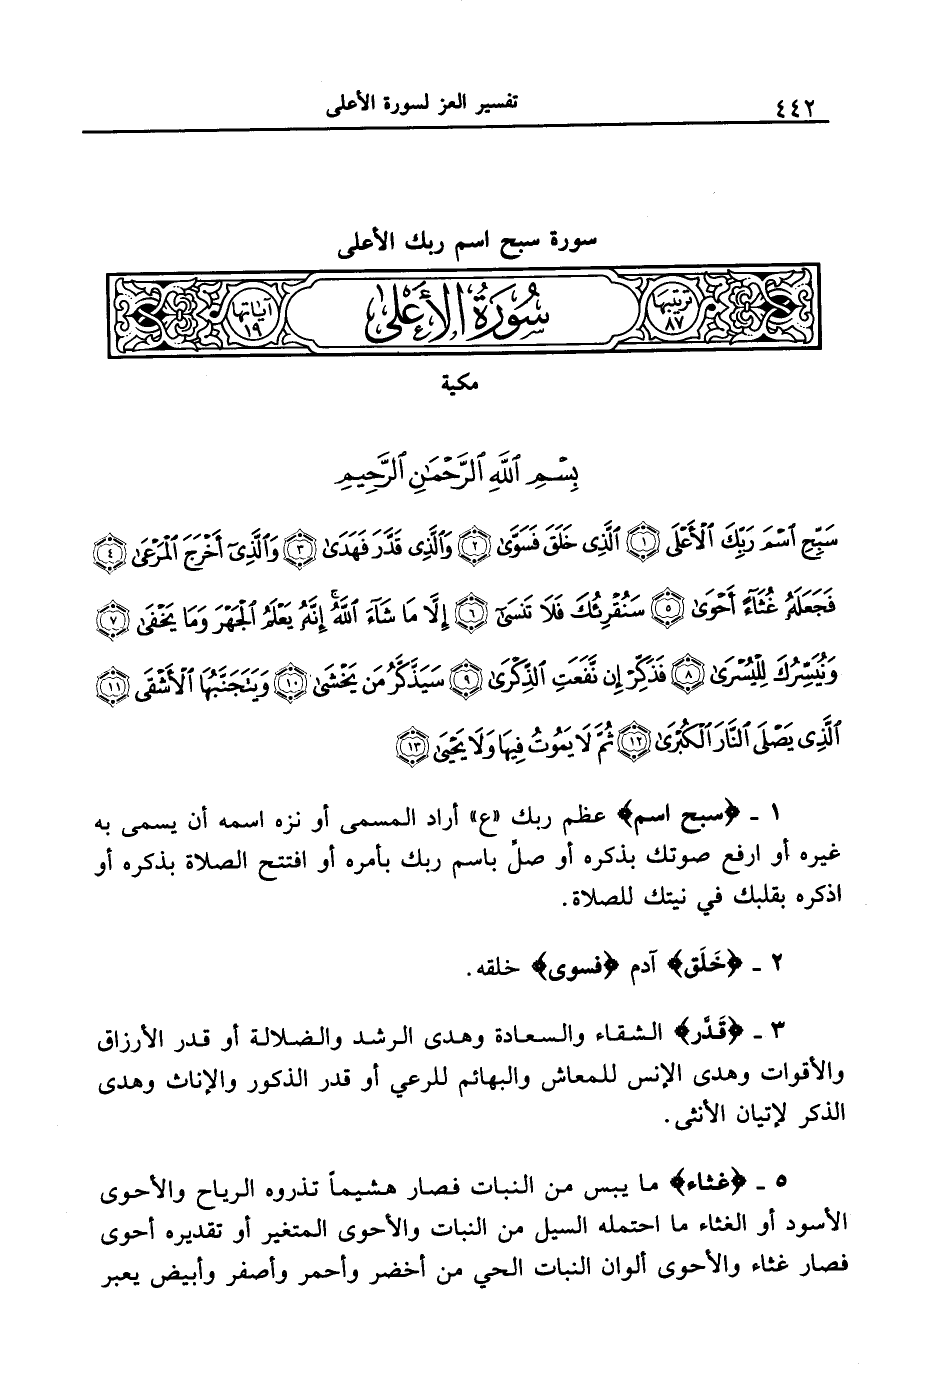 ٤٤٢
تفسير العز لسورة الأعلى
سورة سبح اسم ربك الأعلى
ترتيبها ٨٧
سُورَةُ الأَعْلَى
آياتها ١٩
مكية
بِسْمِ ٱللَّهِ ٱلرَّحْمَٰنِ ٱلرَّحِيمِ
سَبِّحِ ٱسْمَ رَبِّكَ ٱلْأَعْلَى ١ ٱلَّذِى خَلَقَ فَسَوَّىٰ ٢ وَٱلَّذِى قَدَّرَ فَهَدَىٰ ٣ وَٱلَّذِىٓ أَخْرَجَ ٱلْمَرْعَىٰ ٤
فَجَعَلَهُۥ غُثَآءً أَحْوَىٰ ٥ سَنُقْرِئُكَ فَلَا تَنسَىٰٓ ٦ إِلَّا مَا شَآءَ ٱللَّهُ ۚ إِنَّهُۥ يَعْلَمُ ٱلْجَهْرَ وَمَا يَخْفَىٰ ٧
وَنُيَسِّرُكَ لِلْيُسْرَىٰ ٨ فَذَكِّرْ إِن نَّفَعَتِ ٱلذِّكْرَىٰ ٩ سَيَذَّكَّرُ مَن يَخْشَىٰ ١٠ وَيَتَجَنَّبُهَا ٱلْأَشْقَى ١١
ٱلَّذِى يَصْلَى ٱلنَّارَ ٱلْكُبْرَىٰ ١٢ ثُمَّ لَا يَمُوتُ فِيهَا وَلَا يَحْيَىٰ ١٣
١ ـ ﴿سبح اسم﴾ عظم ربك «ع» أراد المسمى أو نزه اسمه أن يسمى به
غيره أو ارفع صوتك بذكره أو صلِّ باسم ربك بأمره أو افتتح الصلاة بذكره أو
اذكره بقلبك في نيتك للصلاة.
٢ ـ ﴿خَلَق﴾ آدم ﴿فسوى﴾ خلقه.
٣ ـ ﴿قَدَّر﴾ الشقاء والسعادة وهدى الرشد والضلالة أو قدر الأرزاق
والأقوات وهدى الإنس للمعاش والبهائم للرعي أو قدر الذكور والإناث وهدى
الذكر لإتيان الأنثى.
٥ ـ ﴿غثاء﴾ ما يبس من النبات فصار هشيماً تذروه الرياح والأحوى
الأسود أو الغثاء ما احتمله السيل من النبات والأحوى المتغير أو تقديره أحوى
فصار غثاء والأحوى ألوان النبات الحي من أخضر وأحمر وأصفر وأبيض يعبر